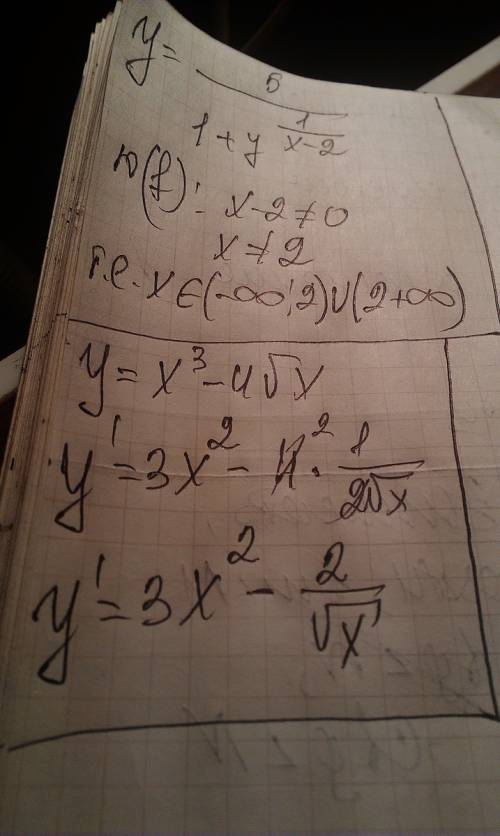 y = 5 / (1 + y^(1/(x-2)))
D(f): x-2≠0
x≠2
т.е. x∈(-∞;2)∪(2+∞)
y = x³ - 4√x
y' = 3x² - 4² · 1/(2√x)
y' = 3x² - 2/√x